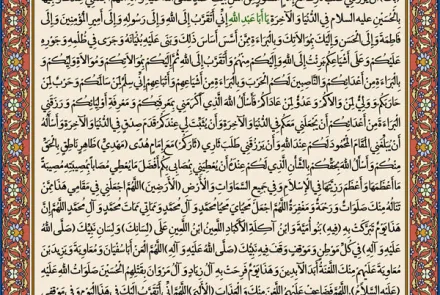 بِالْحُسَيْنِ عليه السلام فِي الدُّنْيَا وَ الْآخِرَةِ يَا أَبَا عَبْدِ اللَّهِ إِنِّي أَتَقَرَّبُ إِلَى اللَّهِ وَ إِلَى رَسُولِهِ وَ إِلَى أَمِيرِ الْمُؤْمِنِينَ وَ إِلَى
فَاطِمَةَ وَ إِلَى الْحَسَنِ وَ إِلَيْكَ بِمُوَالاتِكَ وَ بِالْبَرَاءَةِ مِمَّنْ أَسَّسَ أَسَاسَ ذَلِكَ وَ بَنَى عَلَيْهِ بُنْيَانَهُ وَ جَرَى فِي ظُلْمِهِ وَ جَوْرِهِ
عَلَيْكُمْ وَ عَلَى أَشْيَاعِكُمْ بَرِئْتُ إِلَى اللَّهِ وَ إِلَيْكُمْ مِنْهُمْ وَ أَتَقَرَّبُ إِلَى اللَّهِ ثُمَّ إِلَيْكُمْ بِمُوَالاتِكُمْ وَ مُوَالاةِ وَلِيِّكُمْ وَ
بِالْبَرَاءَةِ مِنْ أَعْدَائِكُمْ وَ النَّاصِبِينَ لَكُمُ الْحَرْبَ وَ بِالْبَرَاءَةِ مِنْ أَشْيَاعِهِمْ وَ أَتْبَاعِهِمْ إِنِّي سِلْمٌ لِمَنْ سَالَمَكُمْ وَ حَرْبٌ لِمَنْ
حَارَبَكُمْ وَ وَلِيٌّ لِمَنْ وَالاكُمْ وَ عَدُوٌّ لِمَنْ عَادَاكُمْ فَأَسْأَلُ اللَّهَ الَّذِي أَكْرَمَنِي بِمَعْرِفَتِكُمْ وَ مَعْرِفَةِ أَوْلِيَائِكُمْ وَ رَزَقَنِي
الْبَرَاءَةَ مِنْ أَعْدَائِكُمْ أَنْ يَجْعَلَنِي مَعَكُمْ فِي الدُّنْيَا وَ الْآخِرَةِ وَ أَنْ يُثَبِّتَ لِي عِنْدَكُمْ قَدَمَ صِدْقٍ فِي الدُّنْيَا وَ الْآخِرَةِ وَ أَسْأَلُهُ
أَنْ يُبَلِّغَنِي الْمَقَامَ الْمَحْمُودَ لَكُمْ عِنْدَ اللَّهِ وَ أَنْ يَرْزُقَنِي طَلَبَ ثَارِي (ثَارِكُمْ) مَعَ إِمَامِ هُدًى (مَهْدِيٍّ) ظَاهِرٍ نَاطِقٍ بِالْحَقِّ
مِنْكُمْ وَ أَسْأَلُ اللَّهَ بِحَقِّكُمْ وَ بِالشَّأْنِ الَّذِي لَكُمْ عِنْدَهُ أَنْ يُعْطِيَنِي بِمُصَابِي بِكُمْ أَفْضَلَ مَا يُعْطِي مُصَابا بِمُصِيبَتِهِ مُصِيبَةً
مَا أَعْظَمَهَا وَ أَعْظَمَ رَزِيَّتَهَا فِي الْإِسْلامِ وَ فِي جَمِيعِ السَّمَاوَاتِ وَ الْأَرْضِ (الْأَرَضِينَ) اللَّهُمَّ اجْعَلْنِي فِي مَقَامِي هَذَا مِمَّنْ
تَنَالُهُ مِنْكَ صَلَوَاتٌ وَ رَحْمَةٌ وَ مَغْفِرَةٌ اللَّهُمَّ اجْعَلْ مَحْيَايَ مَحْيَا مُحَمَّدٍ وَ آلِ مُحَمَّدٍ وَ مَمَاتِي مَمَاتَ مُحَمَّدٍ وَ آلِ مُحَمَّدٍ اللَّهُمَّ إِنَّ
هَذَا يَوْمٌ تَبَرَّكَتْ بِهِ (فِيهِ) بَنُو أُمَيَّةَ وَ ابْنُ آكِلَةِ الْأَكْبَادِ اللَّعِينُ ابْنُ اللَّعِينِ عَلَى (لِسَانِكَ) وَ لِسَانِ نَبِيِّكَ (صَلَّى اللَّهُ
عَلَيْهِ وَ آلِهِ) فِي كُلِّ مَوْطِنٍ وَ مَوْقِفٍ وَقَفَ فِيهِ نَبِيُّكَ (صَلَّى اللَّهُ عَلَيْهِ وَ آلِهِ) اللَّهُمَّ الْعَنْ أَبَا سُفْيَانَ وَ مُعَاوِيَةَ وَ يَزِيدَ بْنَ
مُعَاوِيَةَ عَلَيْهِمْ مِنْكَ اللَّعْنَةُ أَبَدَ الْآبِدِينَ وَ هَذَا يَوْمٌ فَرِحَتْ بِهِ آلُ زِيَادٍ وَ آلُ مَرْوَانَ بِقَتْلِهِمُ الْحُسَيْنَ صَلَوَاتُ اللَّهِ عَلَيْهِ
(عَلَيْهِ السَّلامُ) اللَّهُمَّ فَضَاعِفْ عَلَيْهِمُ اللَّعْنَ مِنْكَ وَ الْعَذَابَ (الْأَلِيمَ) اللَّهُمَّ إِنِّي أَتَقَرَّبُ إِلَيْكَ فِي هَذَا الْيَوْمِ وَ فِي مَوْقِفِي